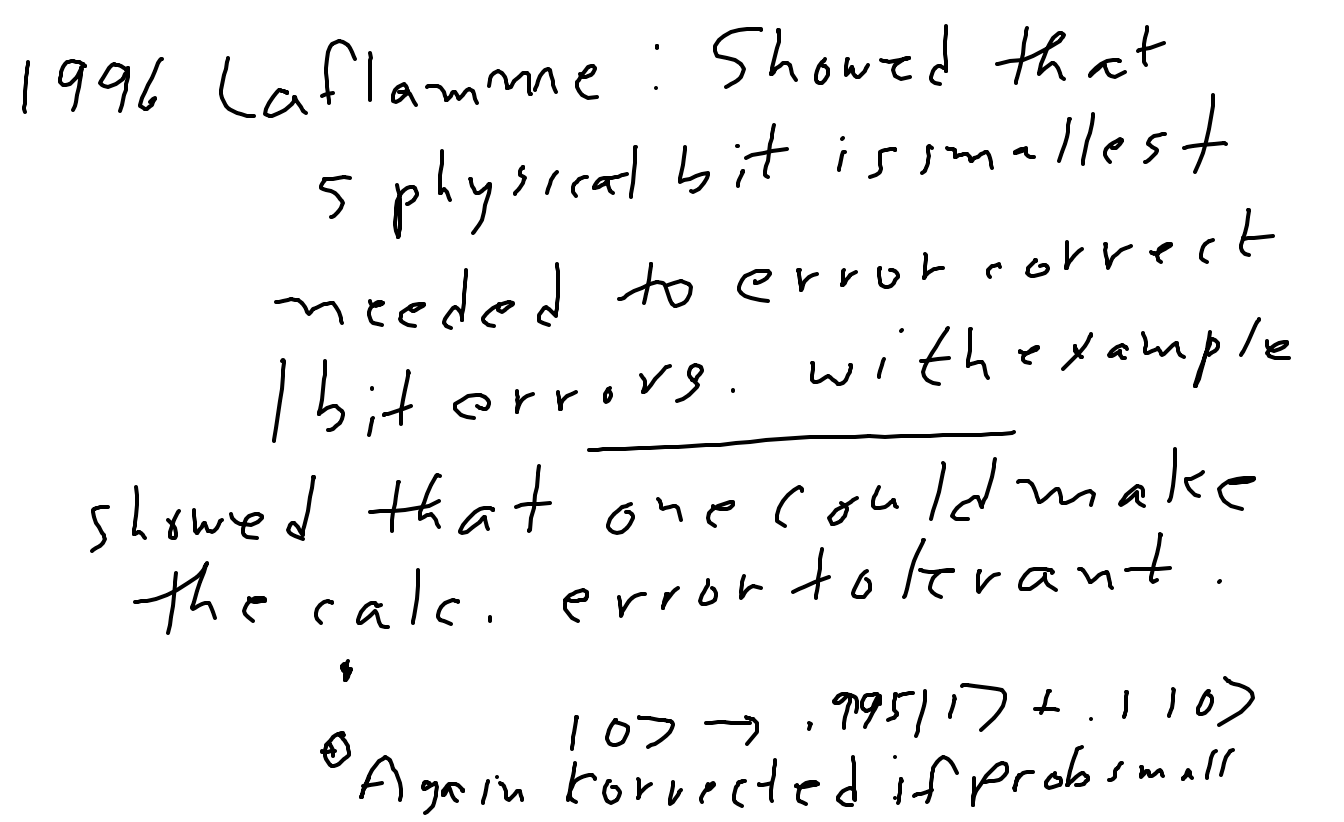 1996 Laflamme : Showed that
5 physical bit is smallest
needed to error correct
1 bit errors. with example
showed that one could make
the calc. error tolerant.
|0> → .995|1> + .1|0>
Again corrected if prob small